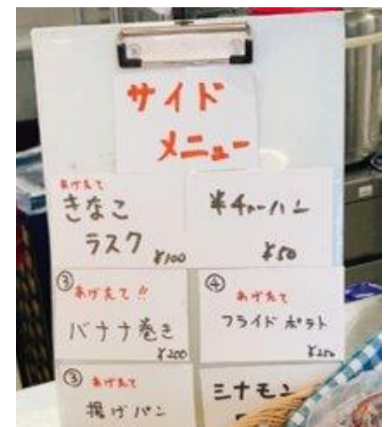 サイド
メニュー
あげたて
きなこ
ラスク
¥100
半チャーハン
¥50
③
あげたて!!
バナナ巻き
¥200
④
あげたて
フライドポテト
¥250
③
あげたて
揚げパン
シナモン